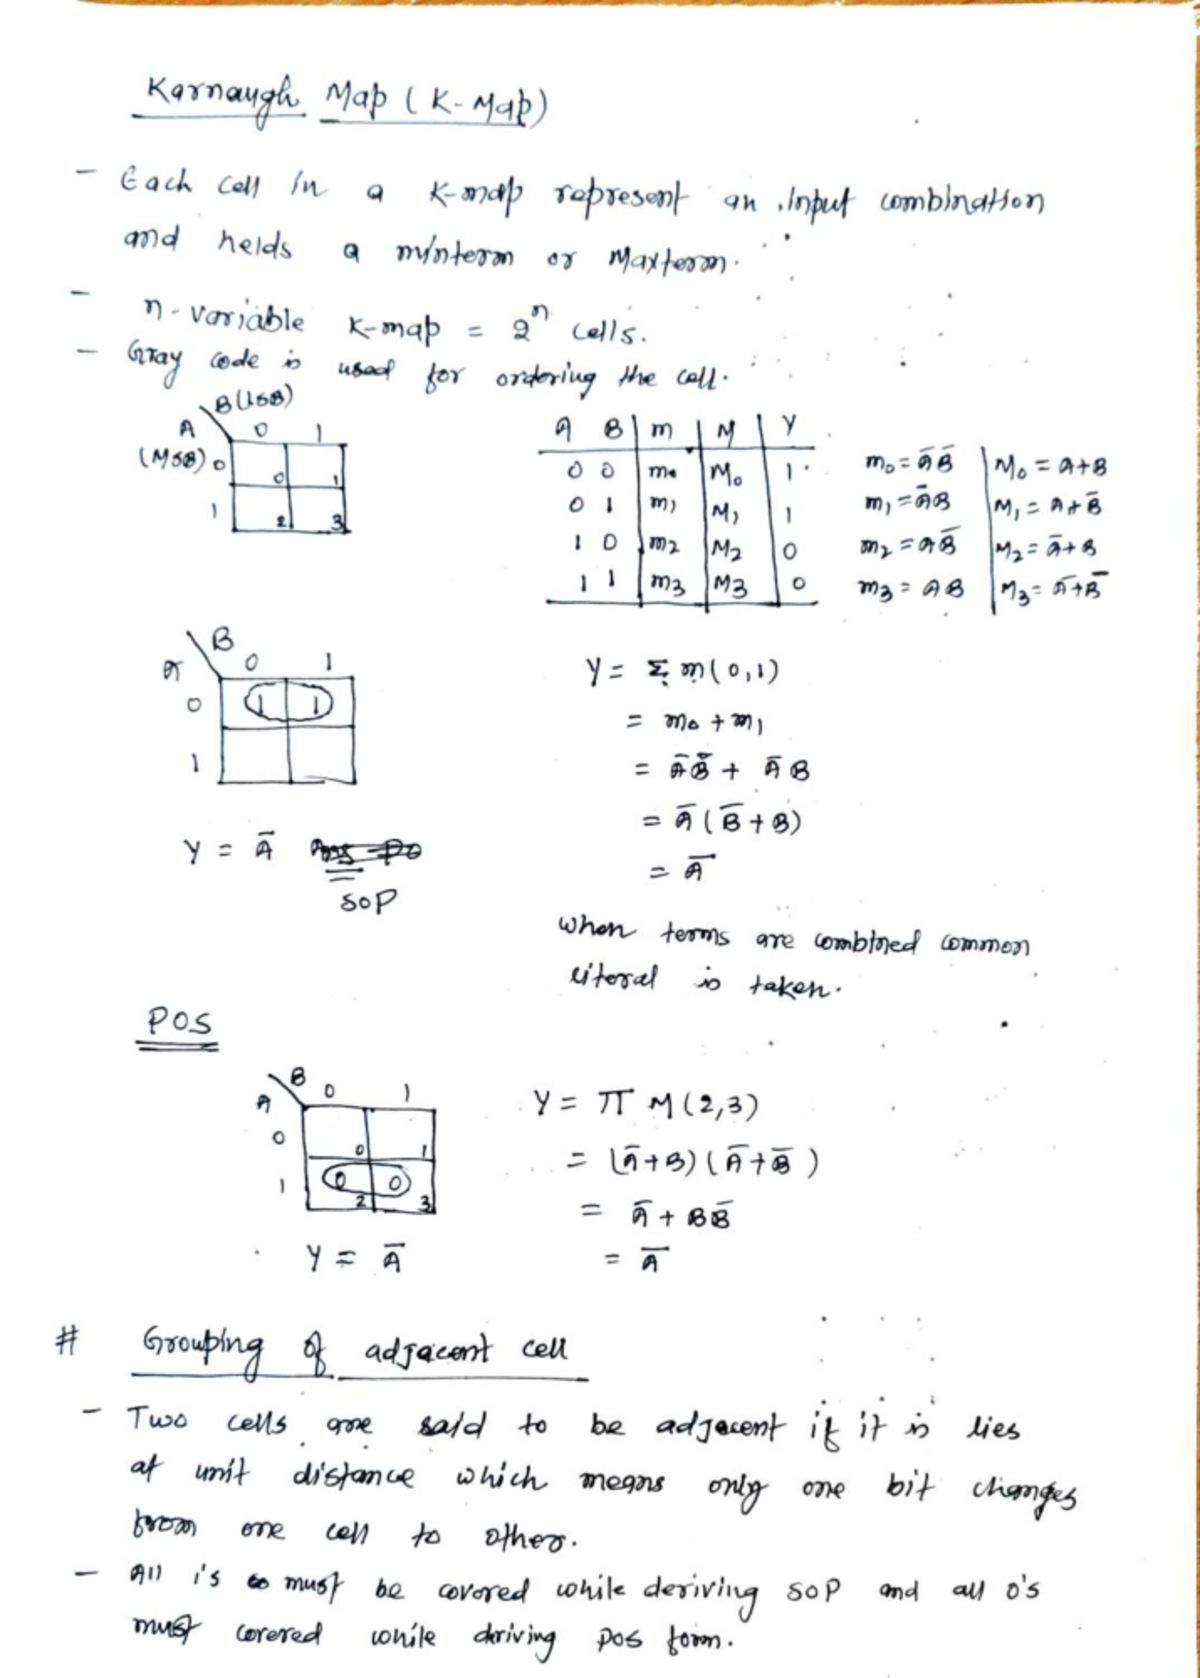 Karnaugh Map (K-Map)
- Each cell in a K-map represent an input combination
and helds a minterm or Maxterm.
- n-variable K-map = 2ⁿ cells.
- Gray code is used for ordering the cell.
B(LSB)
A 0 1
(MSB) 0 0 1
1 2 3
A B m M Y
0 0 m₀ M₀ 1
0 1 m₁ M₁ 1
1 0 m₂ M₂ 0
1 1 m₃ M₃ 0
m₀ = A̅B̅ M₀ = A+B
m₁ = A̅B M₁ = A+B̅
m₂ = AB̅ M₂ = A̅+B
m₃ = AB M₃ = A̅+B̅
B
A 0 1
0 1 1
1
Y = A̅
SOP
Y = Σ m(0,1)
= m₀ + m₁
= A̅B̅ + A̅B
= A̅(B̅+B)
= A̅
When terms are combined common
literal is taken.
POS
B
A 0 1
0 0 1
1 0 0
2 3
Y = A̅
Y = π M(2,3)
= (A̅+B)(A̅+B̅)
= A̅ + BB̅
= A̅
# Grouping of adjacent cell
- Two cells are said to be adjacent if it is lies
at unit distance which means only one bit changes
from one cell to other.
- All 1's must be covered while deriving SOP and all 0's
must covered while deriving POS form.